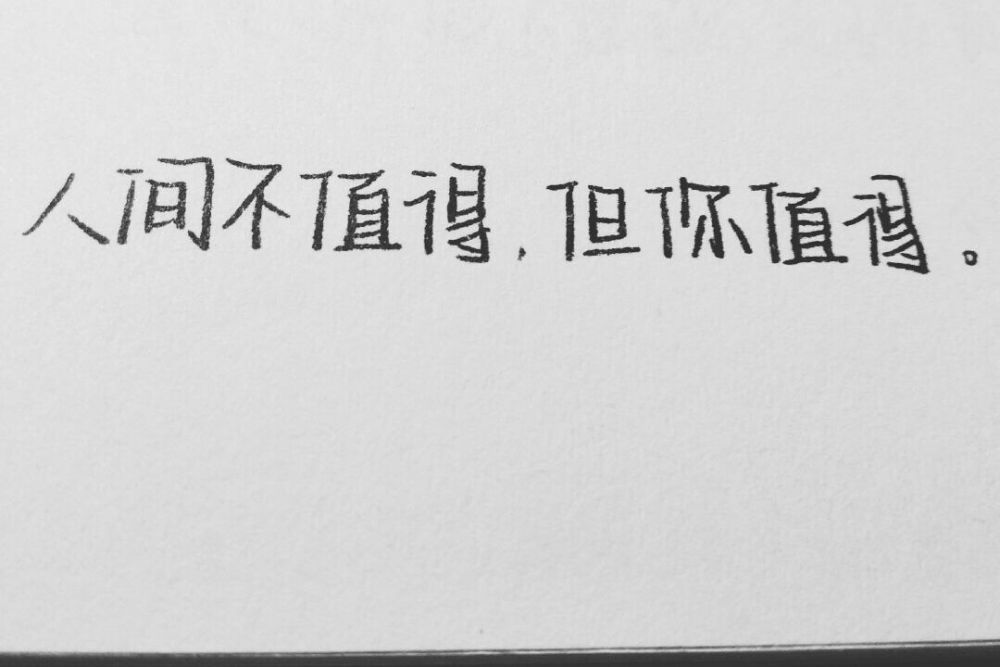 人间不值得，但你值得。